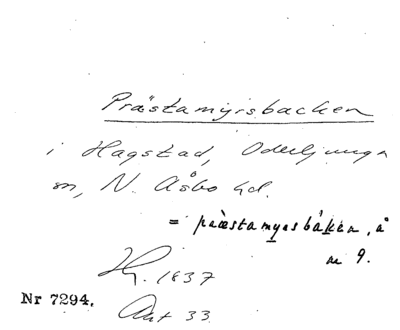 Prästamyrsbacken
i Hagstad, Oderljunga
sn, N. Åsbo hd.
= præstamyrsbåken, å
m 9.
Hg. 1837
Nr 7294.
Akt 33